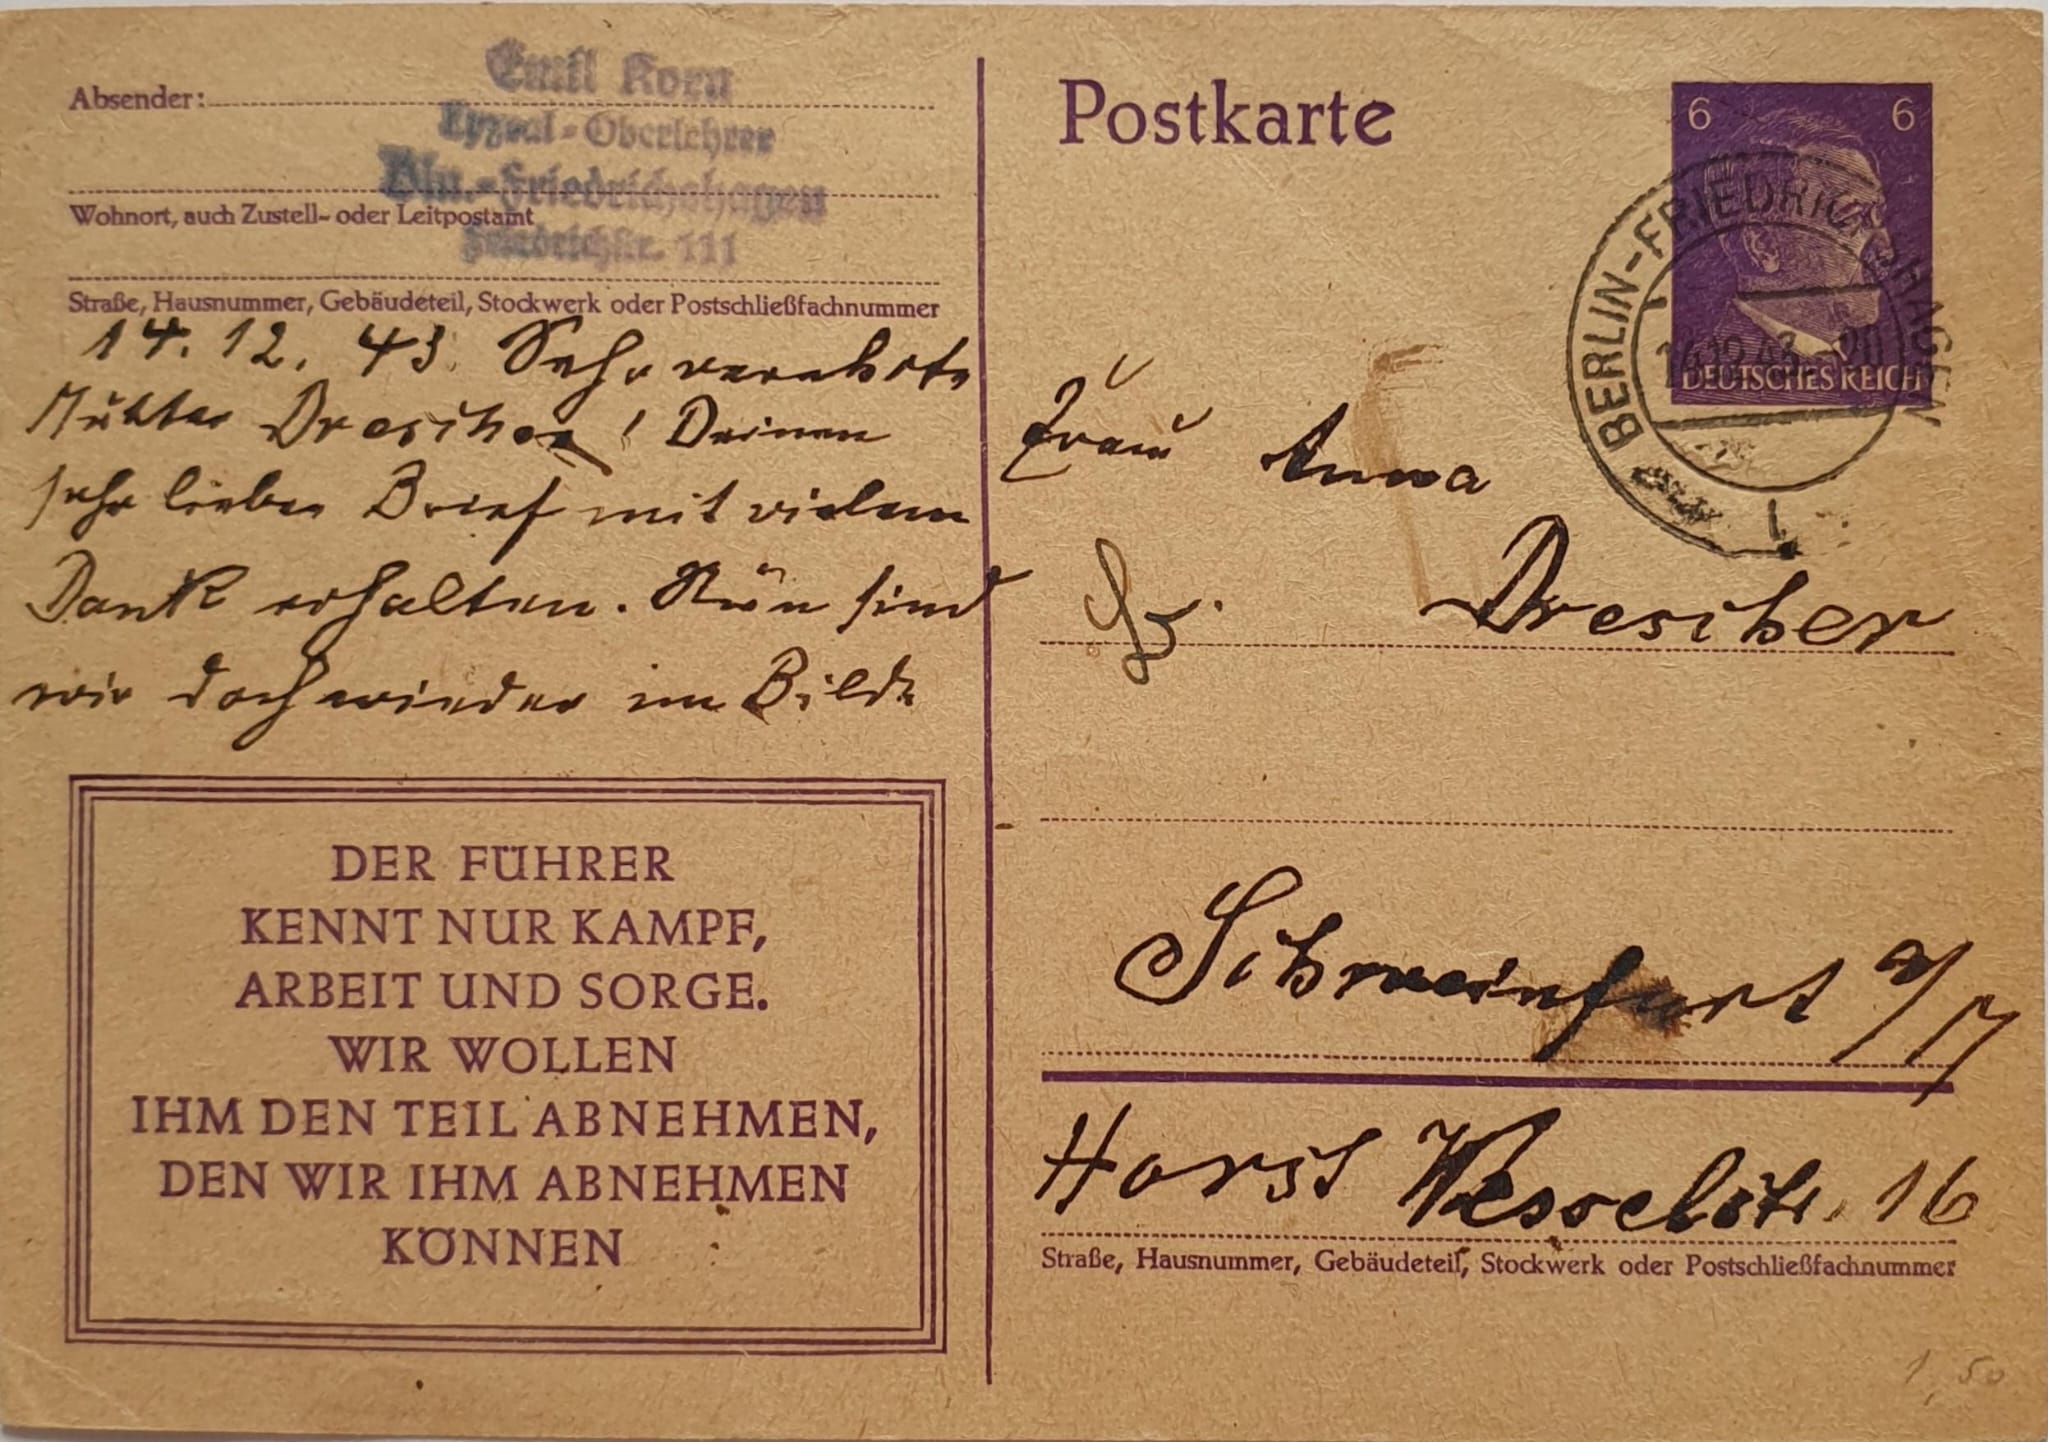 Absender:
Emil Korn
Lyzeal-Oberlehrer
Bln.-Friedrichshagen
Wohnort, auch Zustell- oder Leitpostamt
Friedrichstr. 111
Straße, Hausnummer, Gebäudeteil, Stockwerk oder Postschließfachnummer
14. 12. 43. Sehr verehrte
Mutter Drescher! Deinen
sehr lieben Brief mit vielem
Dank erhalten. Nun sind
wir doch wieder im Bilde
DER FÜHRER
KENNT NUR KAMPF,
ARBEIT UND SORGE.
WIR WOLLEN
IHM DEN TEIL ABNEHMEN,
DEN WIR IHM ABNEHMEN
KÖNNEN
Postkarte
6 6
DEUTSCHES REICH
BERLIN-FRIEDRICHSHAGEN
14.12.43.-20
Frau Anna
Drescher
Schweinfurt a/M
Horst Wesselstr. 16
Straße, Hausnummer, Gebäudeteil, Stockwerk oder Postschließfachnummer
1,50